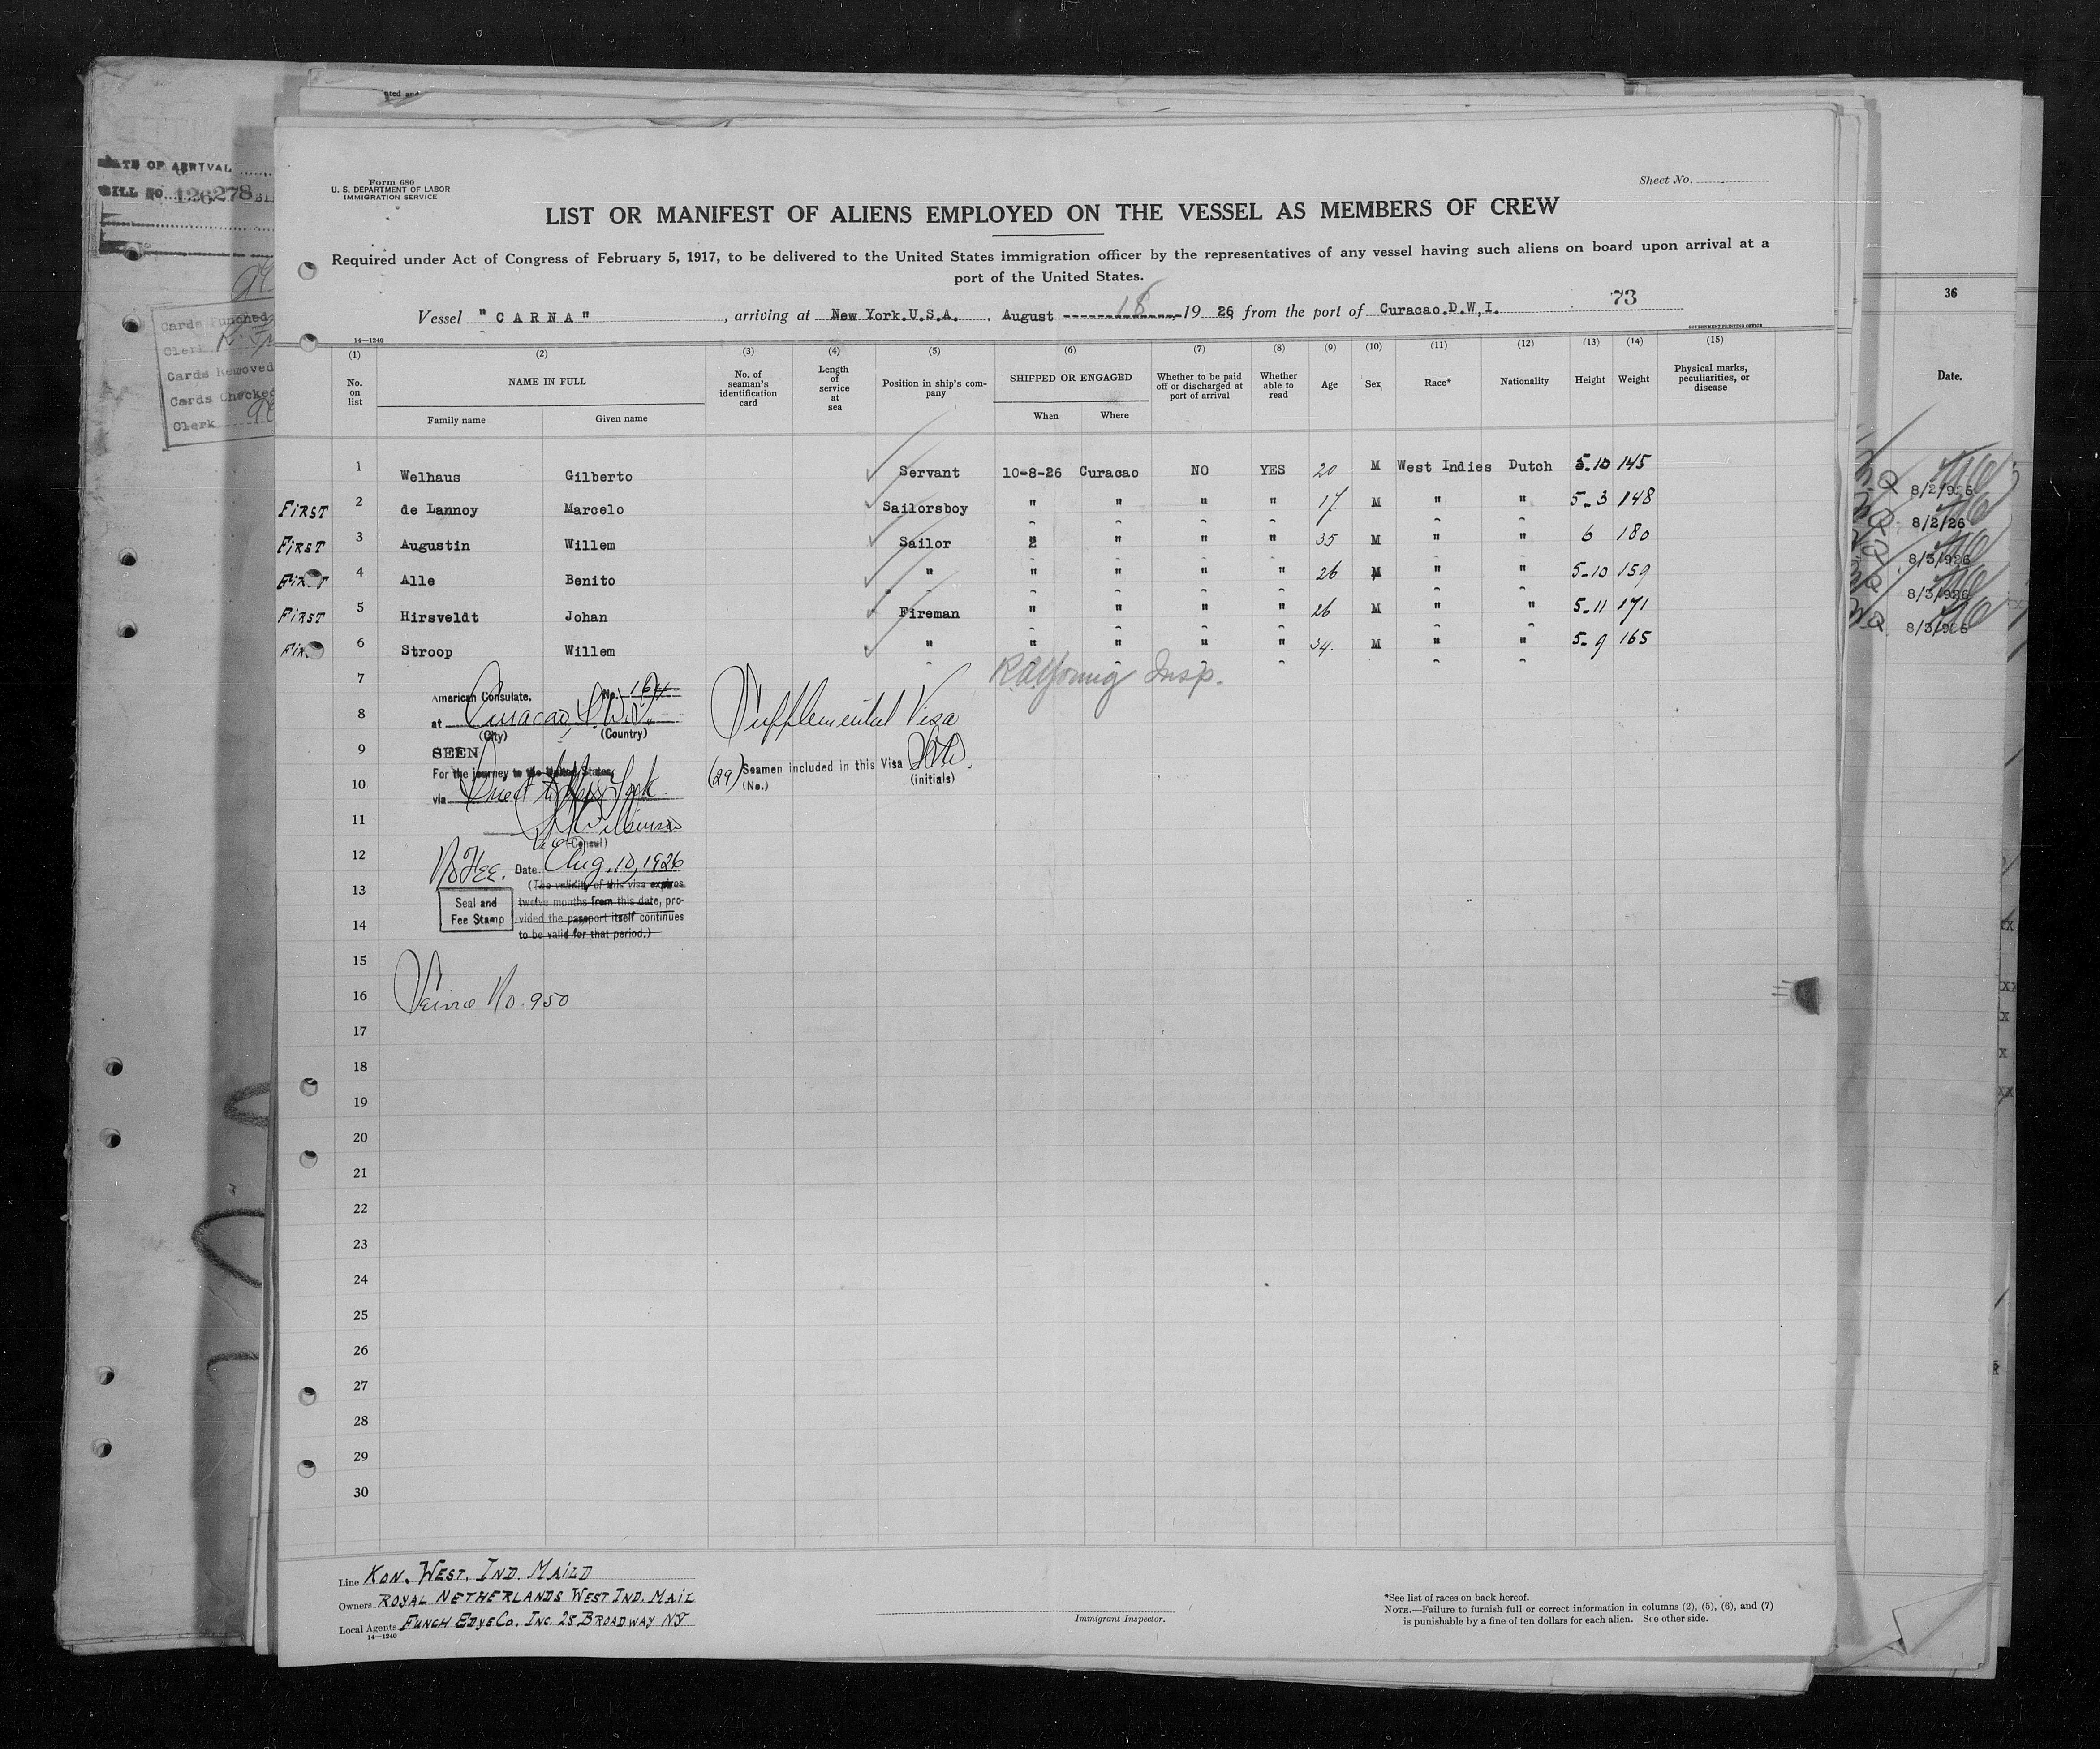 DATE OF ARRIVAL
BILL NO. 126278
Cards Punched
Clerk
Cards Removed
Cards Checked
Clerk
Form 680
U. S. DEPARTMENT OF LABOR
IMMIGRATION SERVICE
Sheet No.
LIST OR MANIFEST OF ALIENS EMPLOYED ON THE VESSEL AS MEMBERS OF CREW
Required under Act of Congress of February 5, 1917, to be delivered to the United States immigration officer by the representatives of any vessel having such aliens on board upon arrival at a
port of the United States.
73
Vessel "CARNA", arriving at New York.U.S.A. , August 18 1926, from the port of Curacao.D.W,I.
GOVERNMENT PRINTING OFFICE
14—1240
(1) (2) (3) (4) (5) (6) (7) (8) (9) (10) (11) (12) (13) (14) (15)
No. on list
NAME IN FULL
Family name
Given name
No. of seaman's identification card
Length of service at sea
Position in ship's company
SHIPPED OR ENGAGED
When
Where
Whether to be paid off or discharged at port of arrival
Whether able to read
Age
Sex
Race*
Nationality
Height
Weight
Physical marks, peculiarities, or disease
1 Welhaus Gilberto Servant 10-8-26 Curacao NO YES 20 M West Indies Dutch 5-10 145
FIRST 2 de Lannoy Marcelo Sailorsboy " " " " 17 M " " 5-3 148
FIRST 3 Augustin Willem Sailor " " " " 35 M " " 6 180
FIRST 4 Alle Benito " " " " " 26 M " " 5-10 159
FIRST 5 Hirsveldt Johan Fireman " " " " 26 M " " 5-11 171
6 Stroop Willem " " " " " 34. M " " 5-9 165
7
R.A. Young Insp.
American Consulate. No.
8
at Curacao, D.W.I.
(City) (Country)
Supplemental Visa
9
SEEN
For the journey to the United States
(29) Seamen included in this Visa
(No.) (initials)
10
via Direct to New York
11
(Consul)
12
No Fee. Date Aug. 10, 1926
13
(The validity of this visa expires
twelve months from this date, pro-
vided the passport itself continues
to be valid for that period.)
Seal and
Fee Stamp
14
15
16
No. 950
17
18
19
20
21
22
23
24
25
26
27
28
29
30
Line KON. WEST. IND. MAILD
Owners ROYAL NETHERLANDS WEST IND. MAIL
Local Agents FUNCH EDYE CO. INC. 25 BROADWAY NY
14—1240
Immigrant Inspector.
*See list of races on back hereof.
NOTE.—Failure to furnish full or correct information in columns (2), (5), (6), and (7)
is punishable by a fine of ten dollars for each alien. See other side.
36
Date.
8/2/926
8/2/26
8/3/926
8/3/926
8/3/926